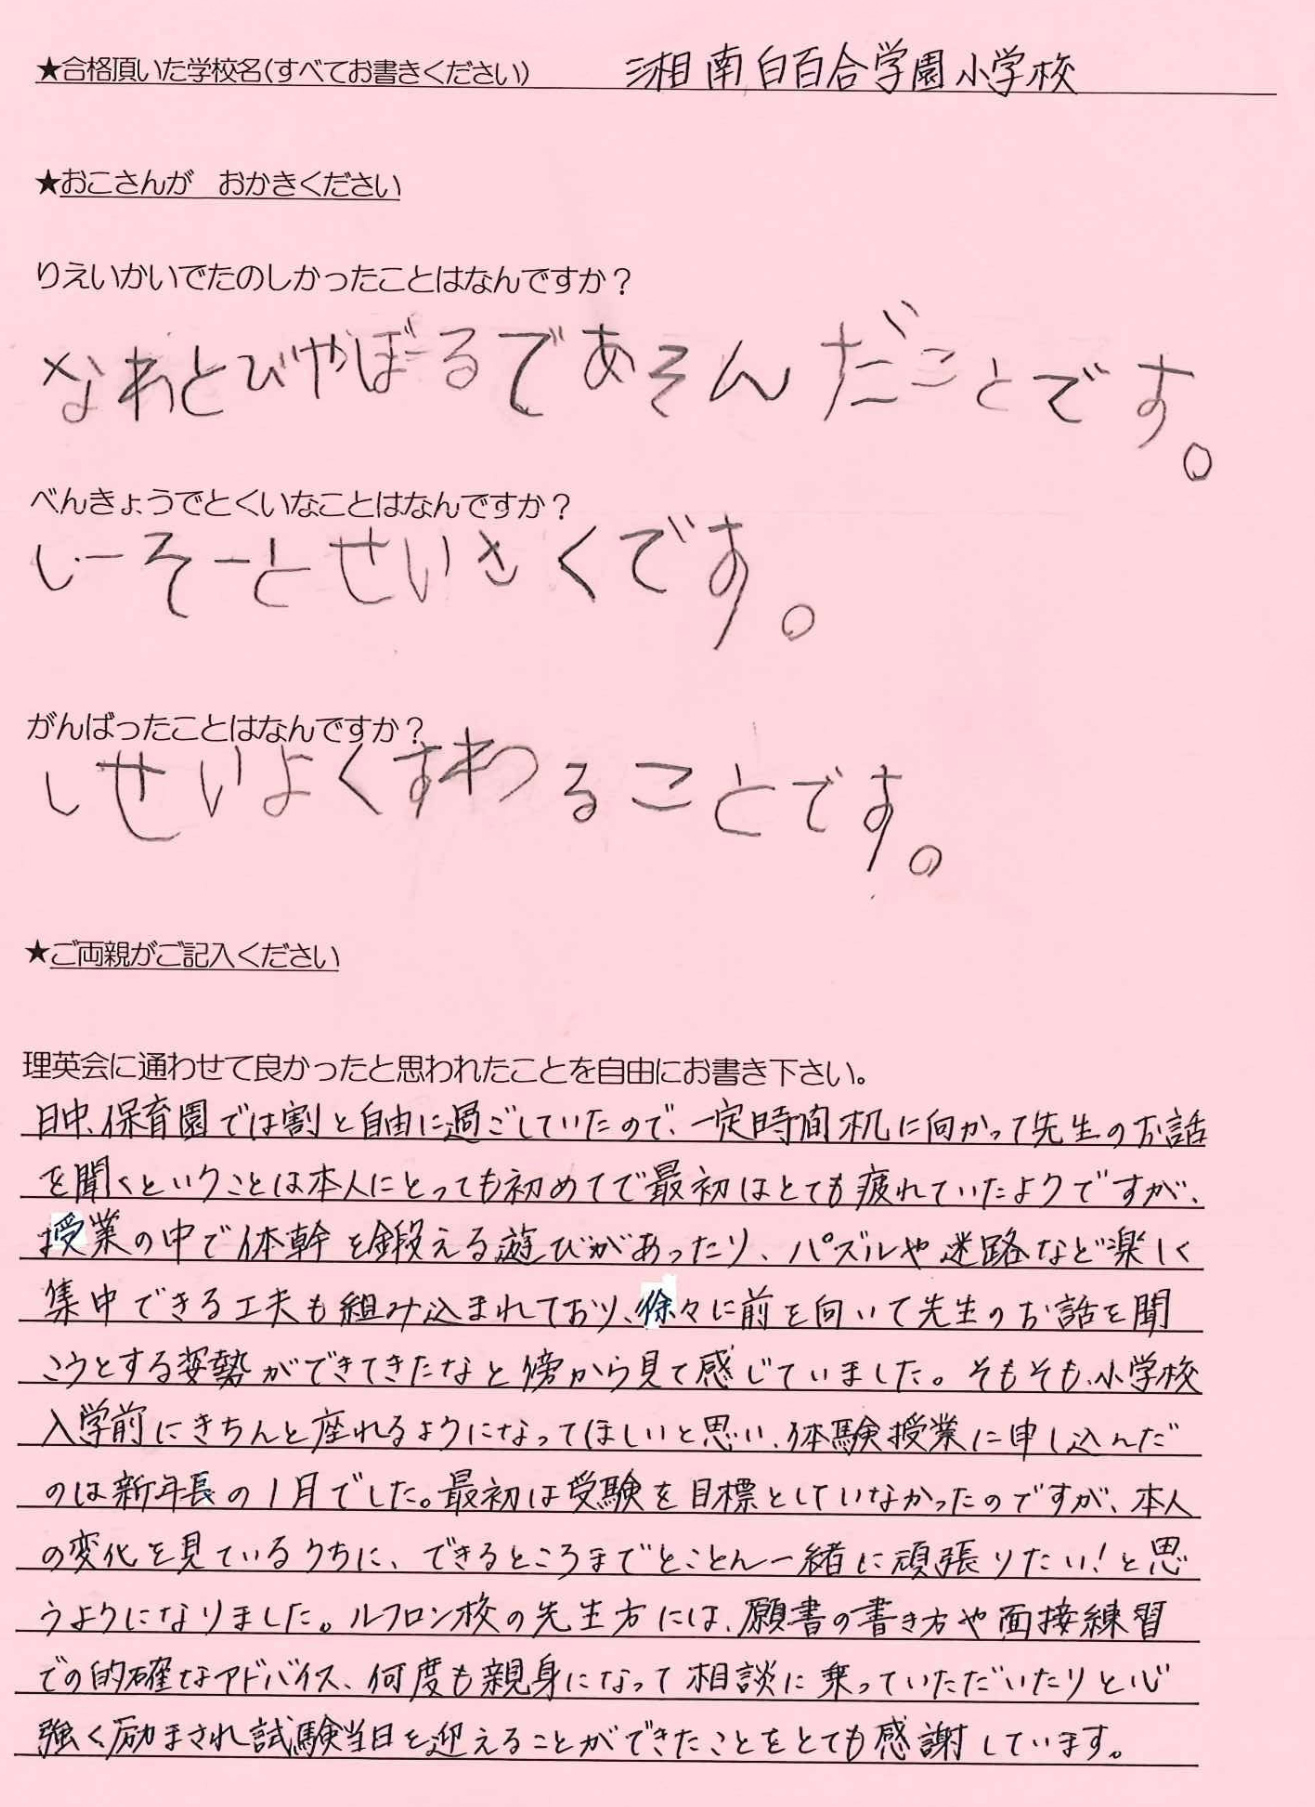 ★合格頂いた学校名(すべてお書きください) 湘南白百合学園小学校
★おこさんが　おかきください
りえいかいでたのしかったことはなんですか？
なわとびやぼーるであそんだことです。
べんきょうでとくいなことはなんですか？
しーそーとせいさくです。
がんばったことはなんですか？
しせいよくすわることです。
★ご両親がご記入ください
理英会に通わせて良かったと思われたことを自由にお書き下さい。
日中、保育園では割と自由に過ごしていたので、一定時間机に向かって先生のお話
を聞くということは本人にとっても初めてで最初はとても疲れていたようですが、
授業の中で体幹を鍛える遊びがあったり、パズルや迷路など楽しく
集中できる工夫も組み込まれており、徐々に前を向いて先生のお話を聞
こうとする姿勢ができてきたなと傍から見て感じていました。そもそも、小学校
入学前にきちんと座れるようになってほしいと思い、体験授業に申し込んだ
のは新年長の1月でした。最初は受験を目標としていなかったのですが、本人
の変化を見ているうちに、できるところまでとことん一緒に頑張りたい！と思
うようになりました。ルフロン校の先生方には、願書の書き方や面接練習
での的確なアドバイス、何度も親身になって相談に乗っていただいたりと心
強く励まされ試験当日を迎えることができたことをとても感謝しています。